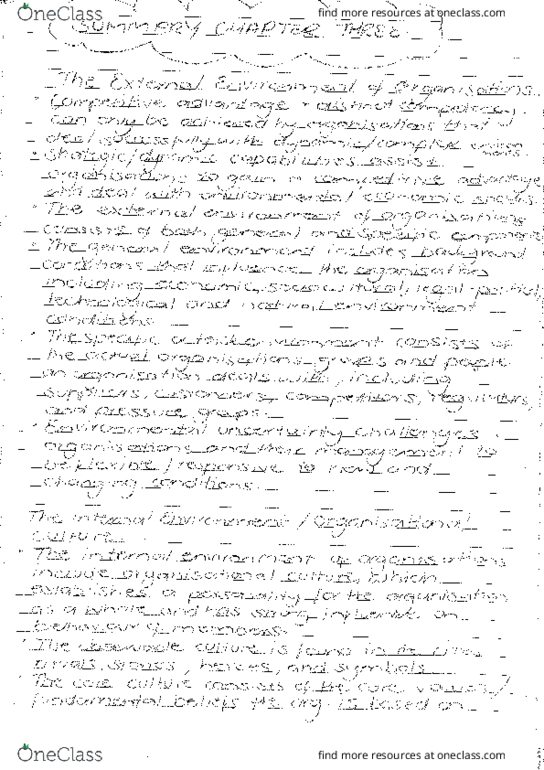 OneClass find more resources at oneclass.com
SUMMARY CHAPTER THREE
The External Environment of Organisations.
Competitive advantage + distinct competency
can only be achieved by organisations that
deal successfully with dynamic/complex
Strategic/dynamic capabilities assist
organisations to gain a competitive advantage
and deal with environmental/economic
The external environment of organisations
consists of both general and specific
The general environment includes background
conditions that influence the organisation
including economic, sociocultural, legal-political,
technological and natural environment
conditions
The specific environment consists of
the actual organisations, groups and people
an organisation deals with, including
suppliers, customers, competitors, regulators,
and pressure groups.
Environmental uncertainty challenges
organisations and their management to
be flexible/responsive to new and
changing conditions.
The internal Environment / Organisational
culture.
The internal environment of organisations
include organisational culture, which
establishes a personality for the organisation
as a whole and has strong influence on
behaviour of members.
The observable culture is found in the
rituals, stories, heroes, and symbols
The core culture consists of the core values/
fundamental beliefs the org. is based on
OneClass find more resources at oneclass.com